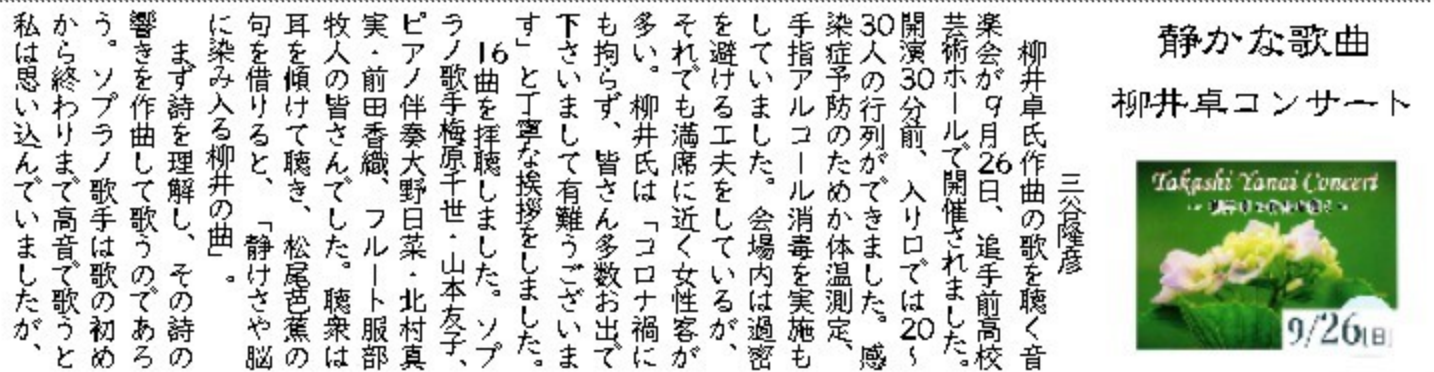 静かな歌曲
柳井卓コンサート
Takashi Yanai Concert
9/26[日]
三谷隆彦
柳井卓氏作曲の歌を聴く音
楽会が9月26日、追手前高校
芸術ホールで開催されました。
開演30分前、入り口では20~
30人の行列ができました。感
染症予防のためか体温測定、
手指アルコール消毒を実施も
していました。会場内は過密
を避ける工夫をしているが、
それでも満席に近く女性客が
多い。柳井氏は「コロナ禍に
も拘らず、皆さん多数お出で
下さいまして有難うございま
す」と丁寧な挨拶をしました。
16曲を拝聴しました。ソプ
ラノ歌手梅原千世・山本友子、
ピアノ伴奏大野日菜・北村真
実・前田香織、フルート服部
牧人の皆さんでした。聴衆は
耳を傾けて聴き、松尾芭蕉の
句を借りると、「静けさや脳
に染み入る柳井の曲」。
まず詩を理解し、その詩の
響きを作曲して歌うのであろ
う。ソプラノ歌手は歌の初め
から終わりまで高音で歌うと
私は思い込んでいましたが、